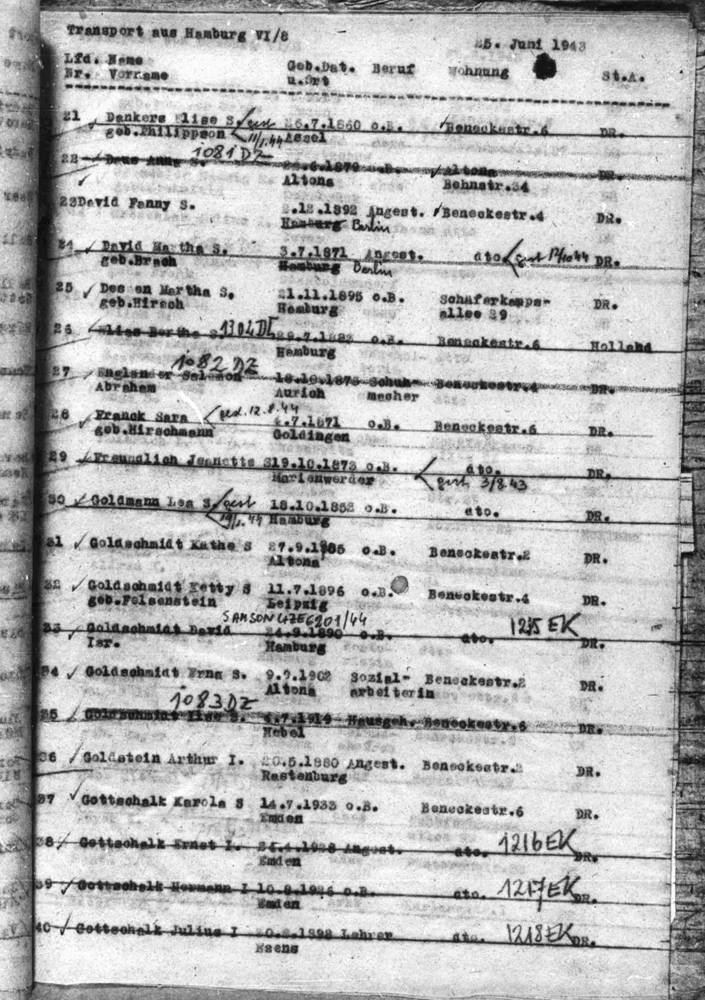 Transport aus Hamburg VI/8 25. Juni 1943
Lfd. Name Geb.Dat. Beruf Wohnung St.A.
Nr. Vorname u.Ort
21 Dankers Elise S. gest 26.7.1860 o.B. Beneckestr.6 DR.
geb.Philippson 11/1.44 Assel
1081 DZ
22 Anna S. o.B. Altona DR.
Altona Behnstr.34
23David Fanny S. 2.12.1892 Angest. Beneckestr.4 DR.
Hamburg Berlin
24 David Martha S. 3.7.1871 Angest. dto gest 12/10 44 DR.
geb.Brach Hamburg Berlin
25 Dessen Martha S. 21.11.1895 o.B. Schäferkamps- DR.
geb.Hirsch Hamburg allee 29
26 Elias Bertha S. 1304 DZ o.B. Beneckestr.6 Holland
Hamburg
1082 DZ
27 Engländer Salomon 18.10.1875 Schuh- Beneckestr.4 DR.
Abraham Aurich macher
28 Franck Sara gest. 12.8.44 4.7.1871 o.B. Beneckestr.6 DR.
geb.Hirschmann Goldingen
29 Freundlich Jeanette S19.10.1873 o.B. dto. DR.
Marienwerder gest. 3/8.43
30 Goldmann Lea S. gest 18.10.1852 o.B. dto. DR.
19/1.44 Hamburg
31 Goldschmidt Kathe S 27.9.1885 o.B. Beneckestr.2 DR.
Altona
32 Goldschmidt Ketty S 11.7.1896 o.B. Beneckestr.4 DR.
geb.Felsenstein Leipzig
33 Goldschmidt David 24.9.1890 o.B. dto. 1215 EK DR.
Isr. Hamburg
34 Goldschmidt Erna S. 9.9.1902 Sozial- Beneckestr.2 DR.
Altona arbeiterin
1083 DZ
35 Goldschmidt Ilse S. 4.7.1914 Hausgeh. Beneckestr.6 DR.
36 Goldstein Arthur I. 20.5.1880 Angest. Beneckestr.2 DR.
Rastenburg
37 Gottschalk Karola S 14.7.1933 o.B. Beneckestr.6 DR.
Emden
38 Gottschalk Ernst I. Angest. dto. 1216 EK DR.
Emden
39 Gottschalk Hermann I 10.8.1926 o.B. dto. 1217 EK DR.
Emden
40 Gottschalk Julius I Lehrer dto. 1218 EK DR.
Esens